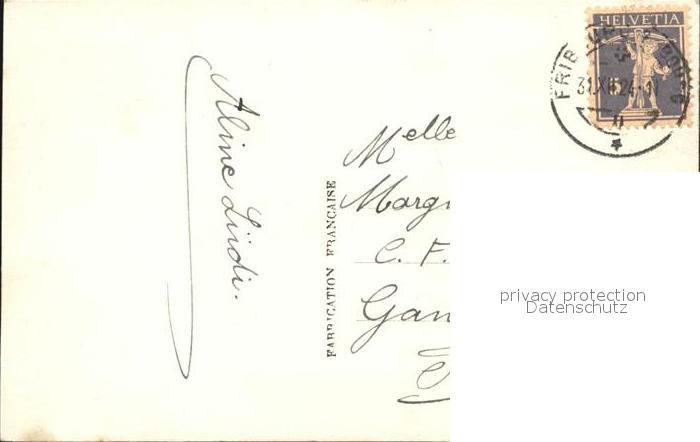 Aline Lüdi.
FABRICATION FRANÇAISE
Melle
C. F.
HELVETIA
31.XII.24
privacy protection
Datenschutz